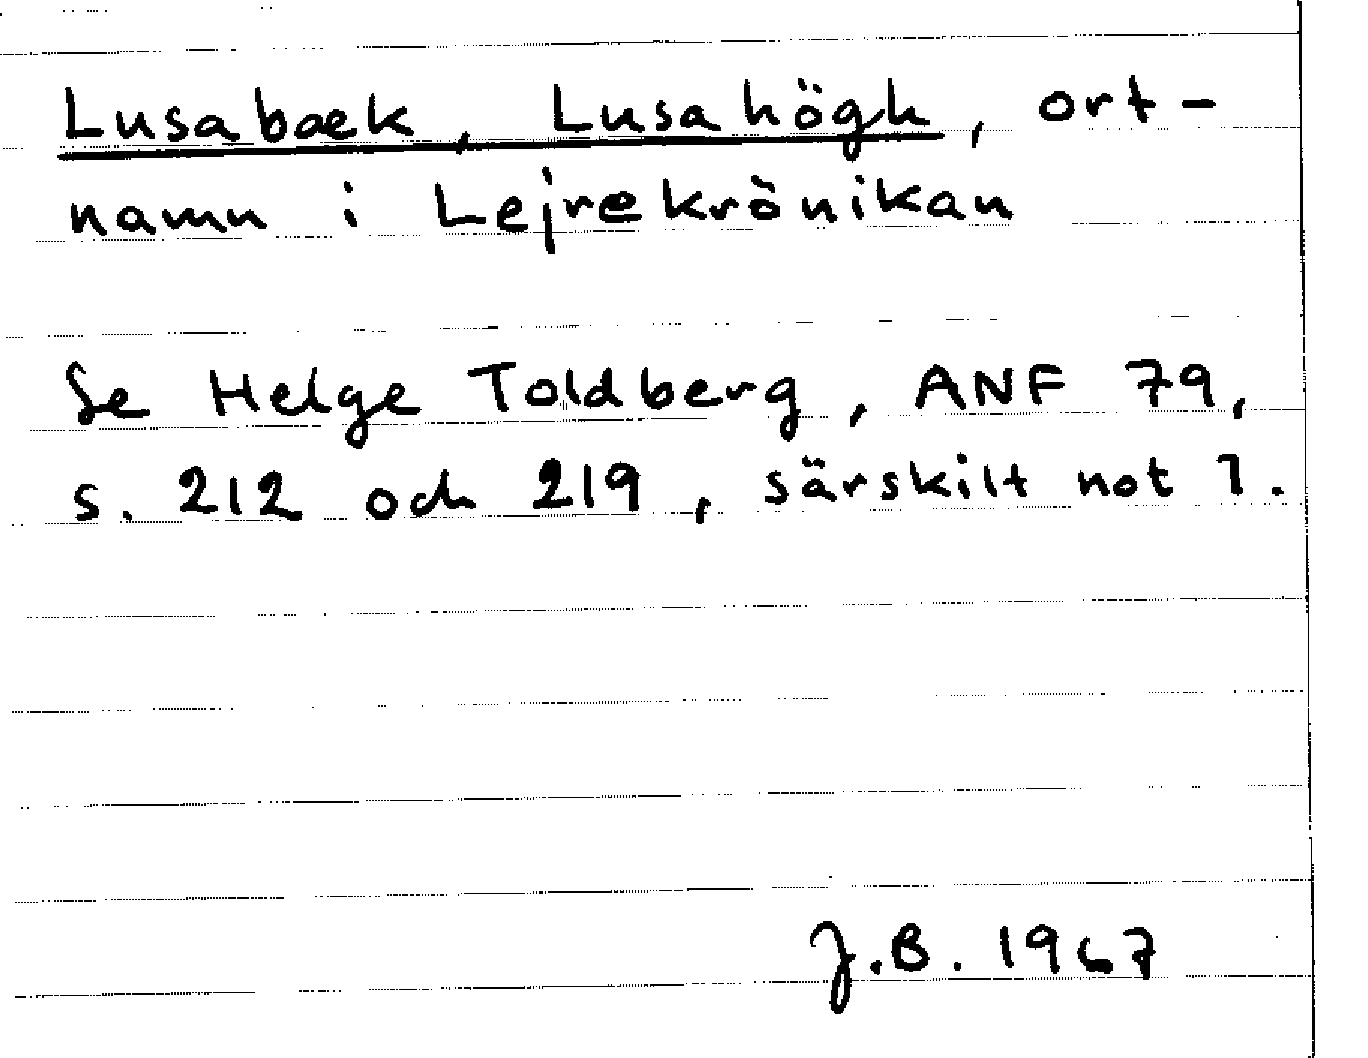 Lusabæk, Lusahögh, ort-
namn i Lejrekrönikan
Se Helge Toldberg, ANF 79,
s. 212 och 219, särskilt not 7.
J.B. 1967